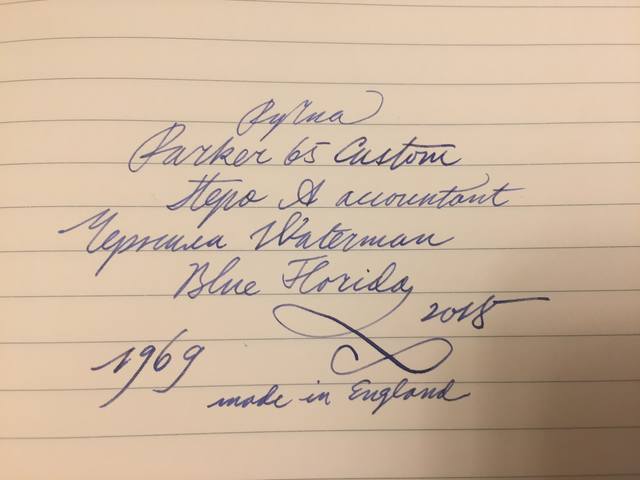 Ручка
Parker 65 Custom
Перо A accountant
Чернила Waterman
Blue Florida
2015
1969
made in England